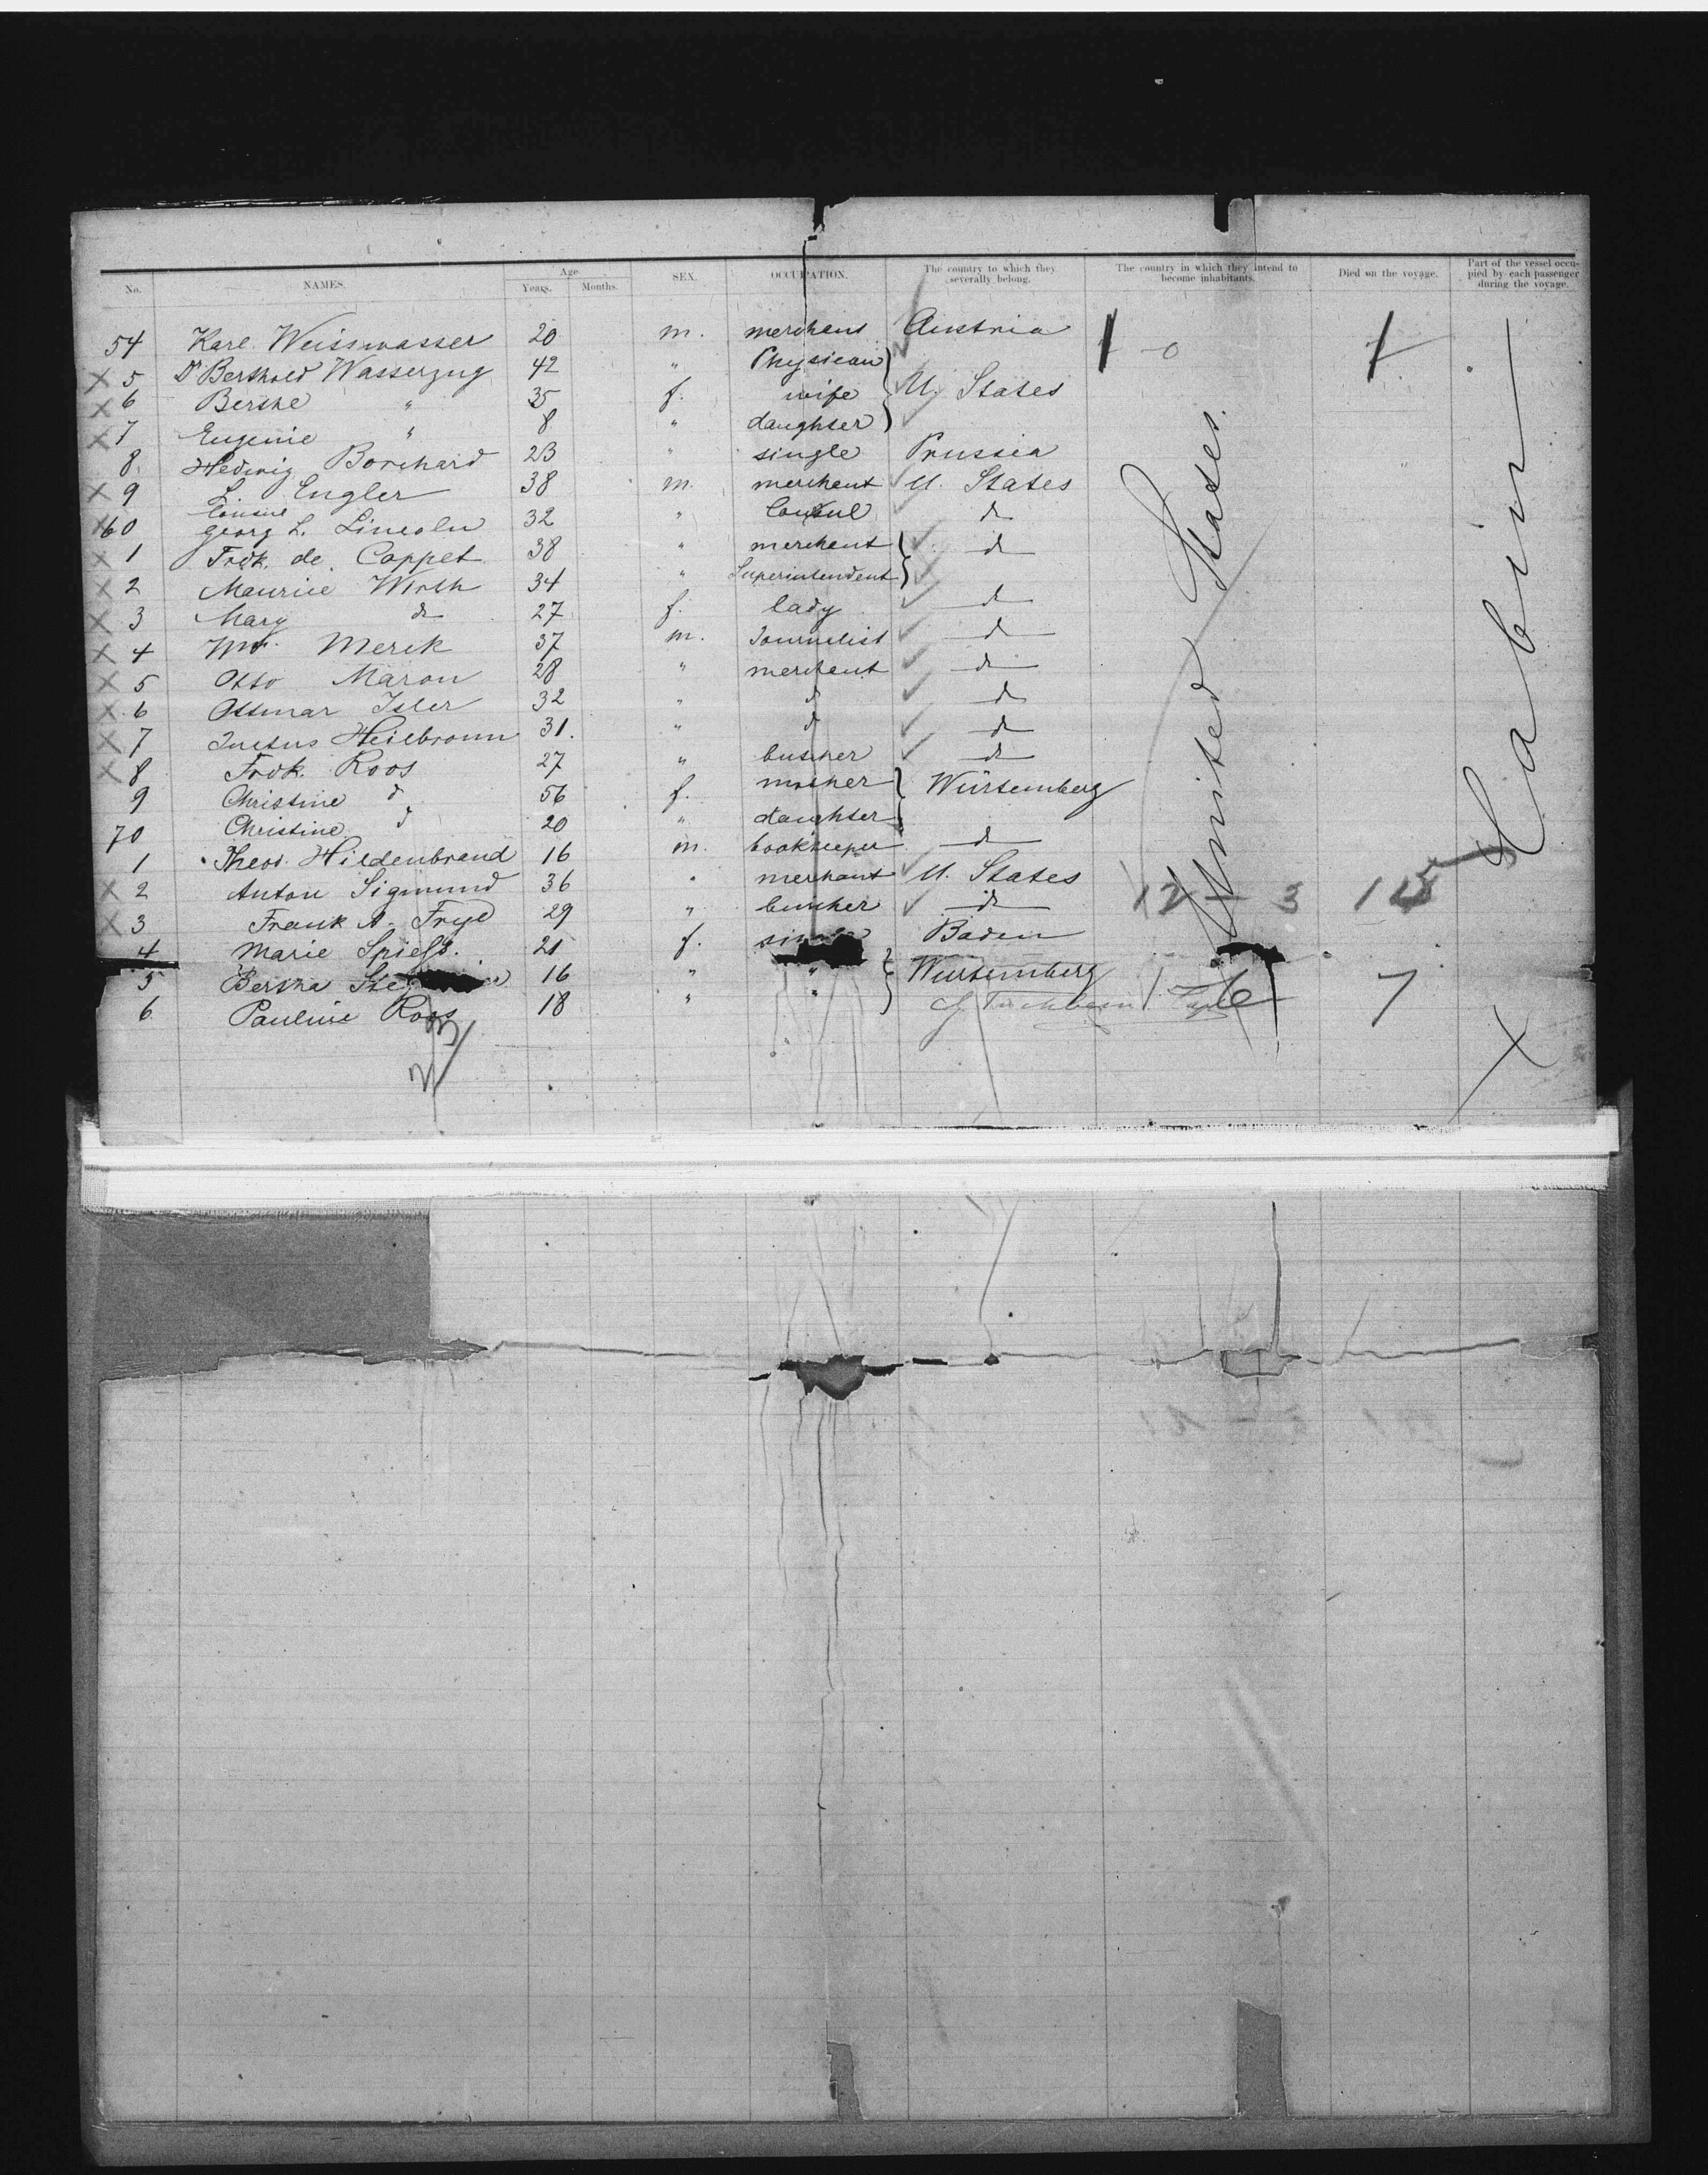 No. NAMES. Age Years. Months. SEX. OCCUPATION. The country to which they severally belong. The country in which they intend to become inhabitants. Died on the voyage. Part of the vessel occupied by each passenger during the voyage.
54 Karl Weisswasser 20 m. merchant Austria 1 - 0 1
X 5 Dr Berthold Wasserzug 42 " Physician
X 6 Berthe " 35 f. wife U. States
X 7 Eugenie " 8 " daughter
8 Hedwig Borchard 23 " single Prussia
X 9 L. Engler 38 m. merchant U. States
X 60 Georg L. Lincoln 32 " Consul d
X 1 Fredk. de Coppet 38 " merchant d
X 2 Maurice Wirth 34 " Superintendent
X 3 Mary d 27 f. lady d
X 4 Merck 37 m. Journalist d
X 5 Otto Maron 28 " merchant d
X 6 Ottmar Isler 32 " d d
X 7 Julius Heilbronn 31. " d d
X 8 Fredk. Roos 27 " butcher d
9 Christine d 56 f. mother Würtemberg
70 Christine d 20 " daughter
1 Theod. Hildenbrand 16 m. bookkeeper d
X 2 Anton Sigmund 36 " merchant U. States
X 3 Frank A. Frye 29 " d
4 Marie Spiess. 21 f. Baden
5 Bertha 16 " " Würtemberg
6 Pauline Roos 18 " " 1 6 7
United States.
Cabin
12 3 15
23
X